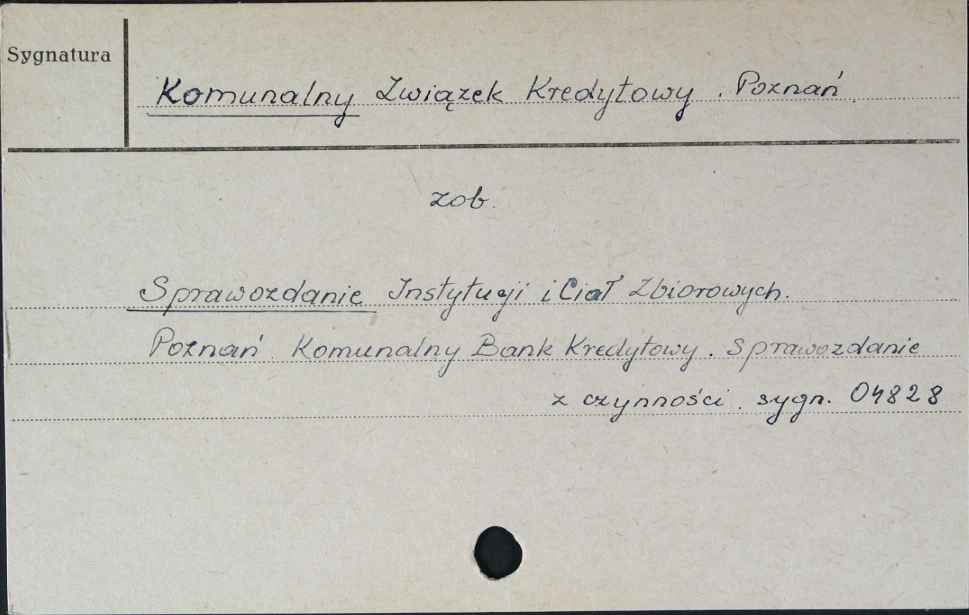 Sygnatura
Komunalny Związek Kredytowy. Poznań.
zob.
Sprawozdanie Instytucji i Ciał Zbiorowych.
Poznań. Komunalny Bank Kredytowy. Sprawozdanie
z czynności. sygn. 04828